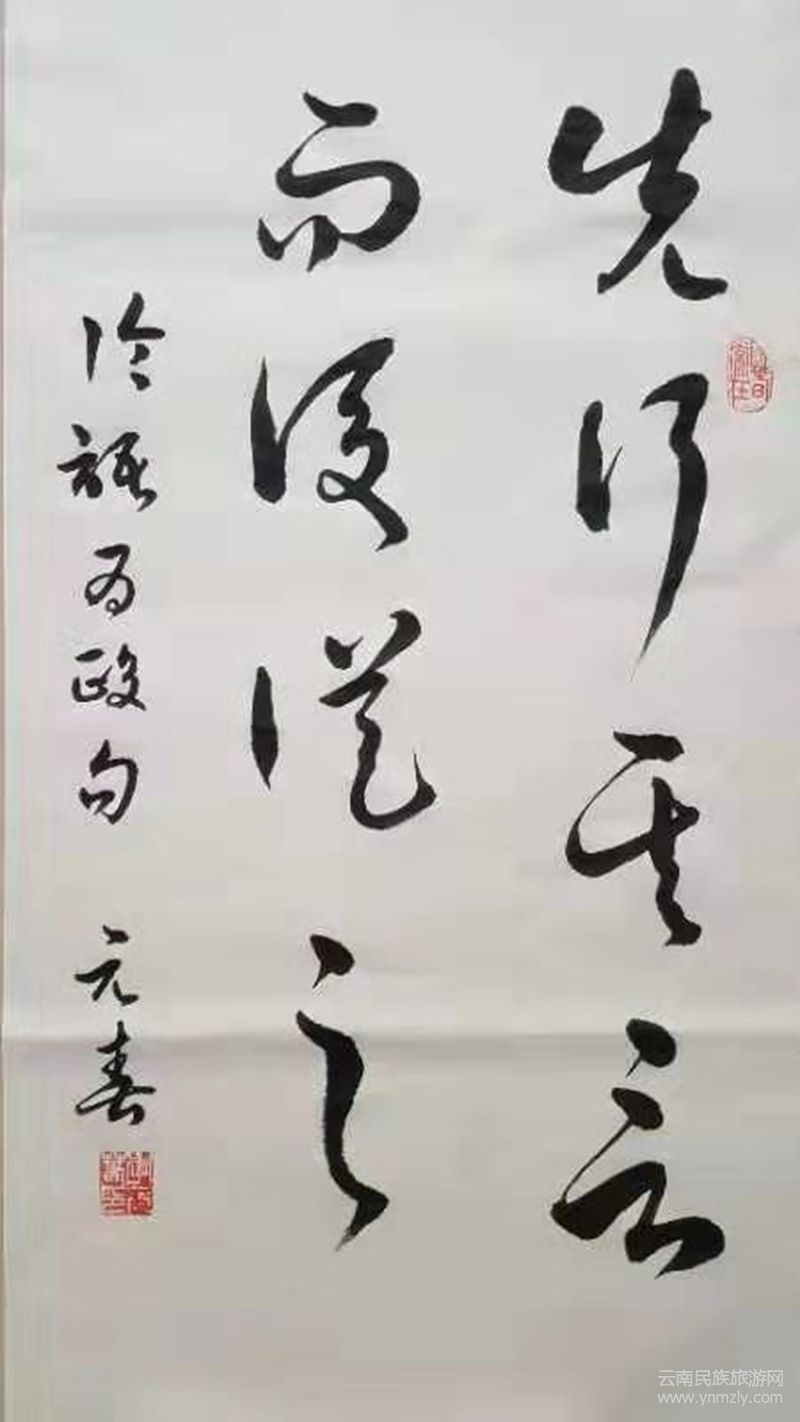 先行其言
而後從之
论語为政句 元春
云南民族旅游网
www.ynmzly.com